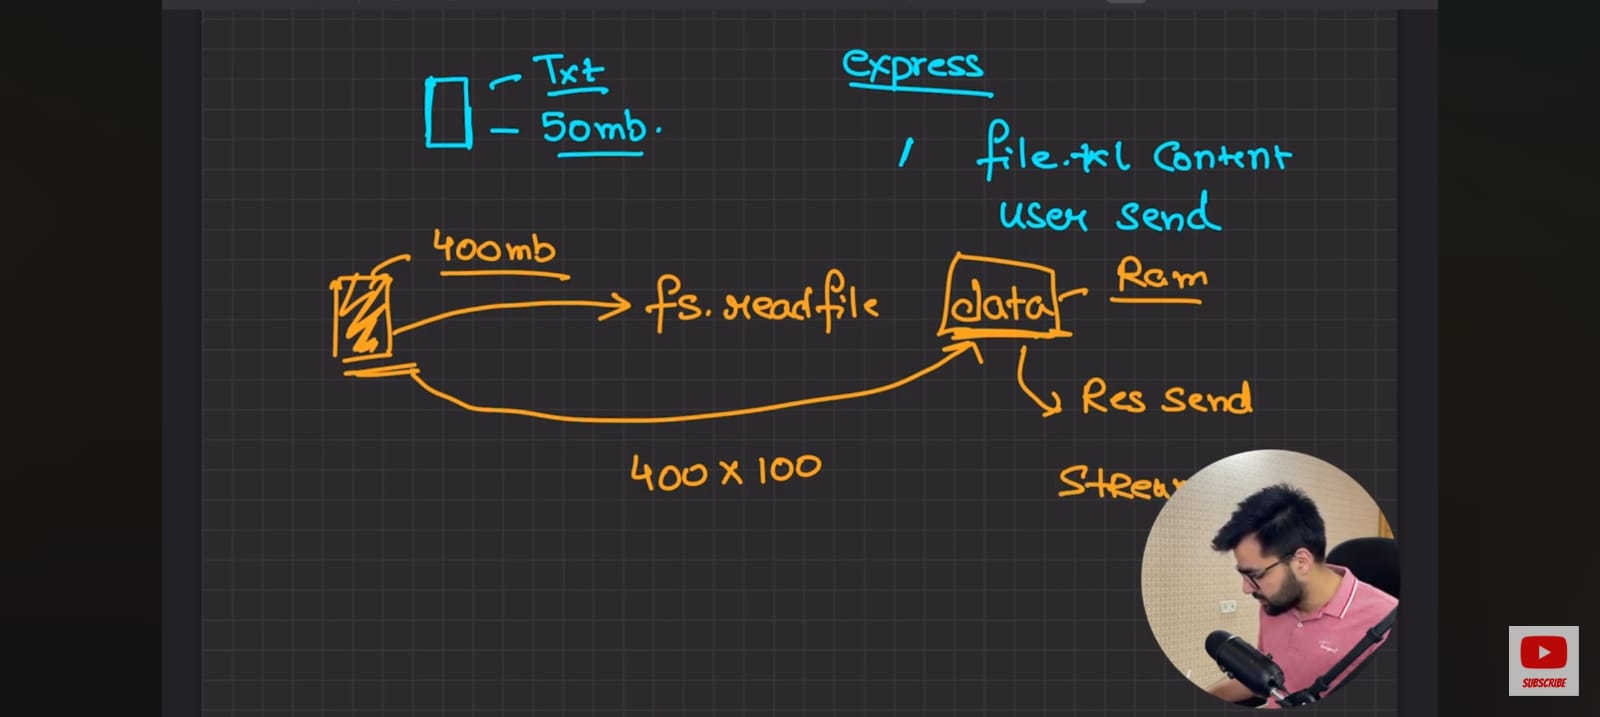 Txt
50mb.
express
/ file.txt Content
user send
400mb
fs.readfile
data
Ram
Res send
400 x 100
SUBSCRIBE